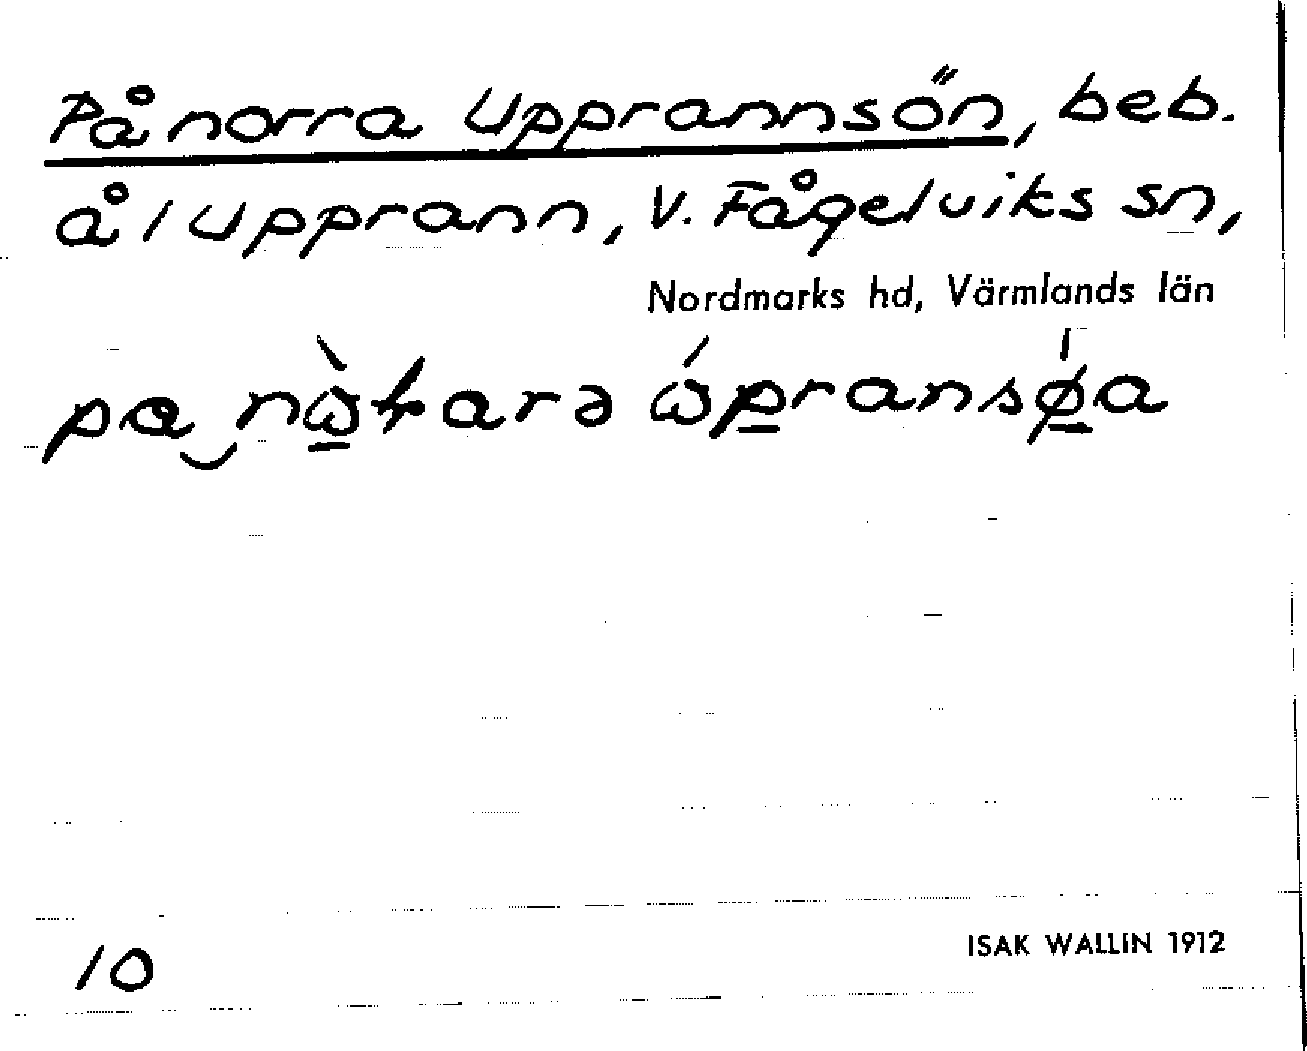 På norra Upprannsön, beb.
å 1 Upprann, V. Fågelviks sn,
Nordmarks hd, Värmlands län
10
ISAK WALLIN 1912